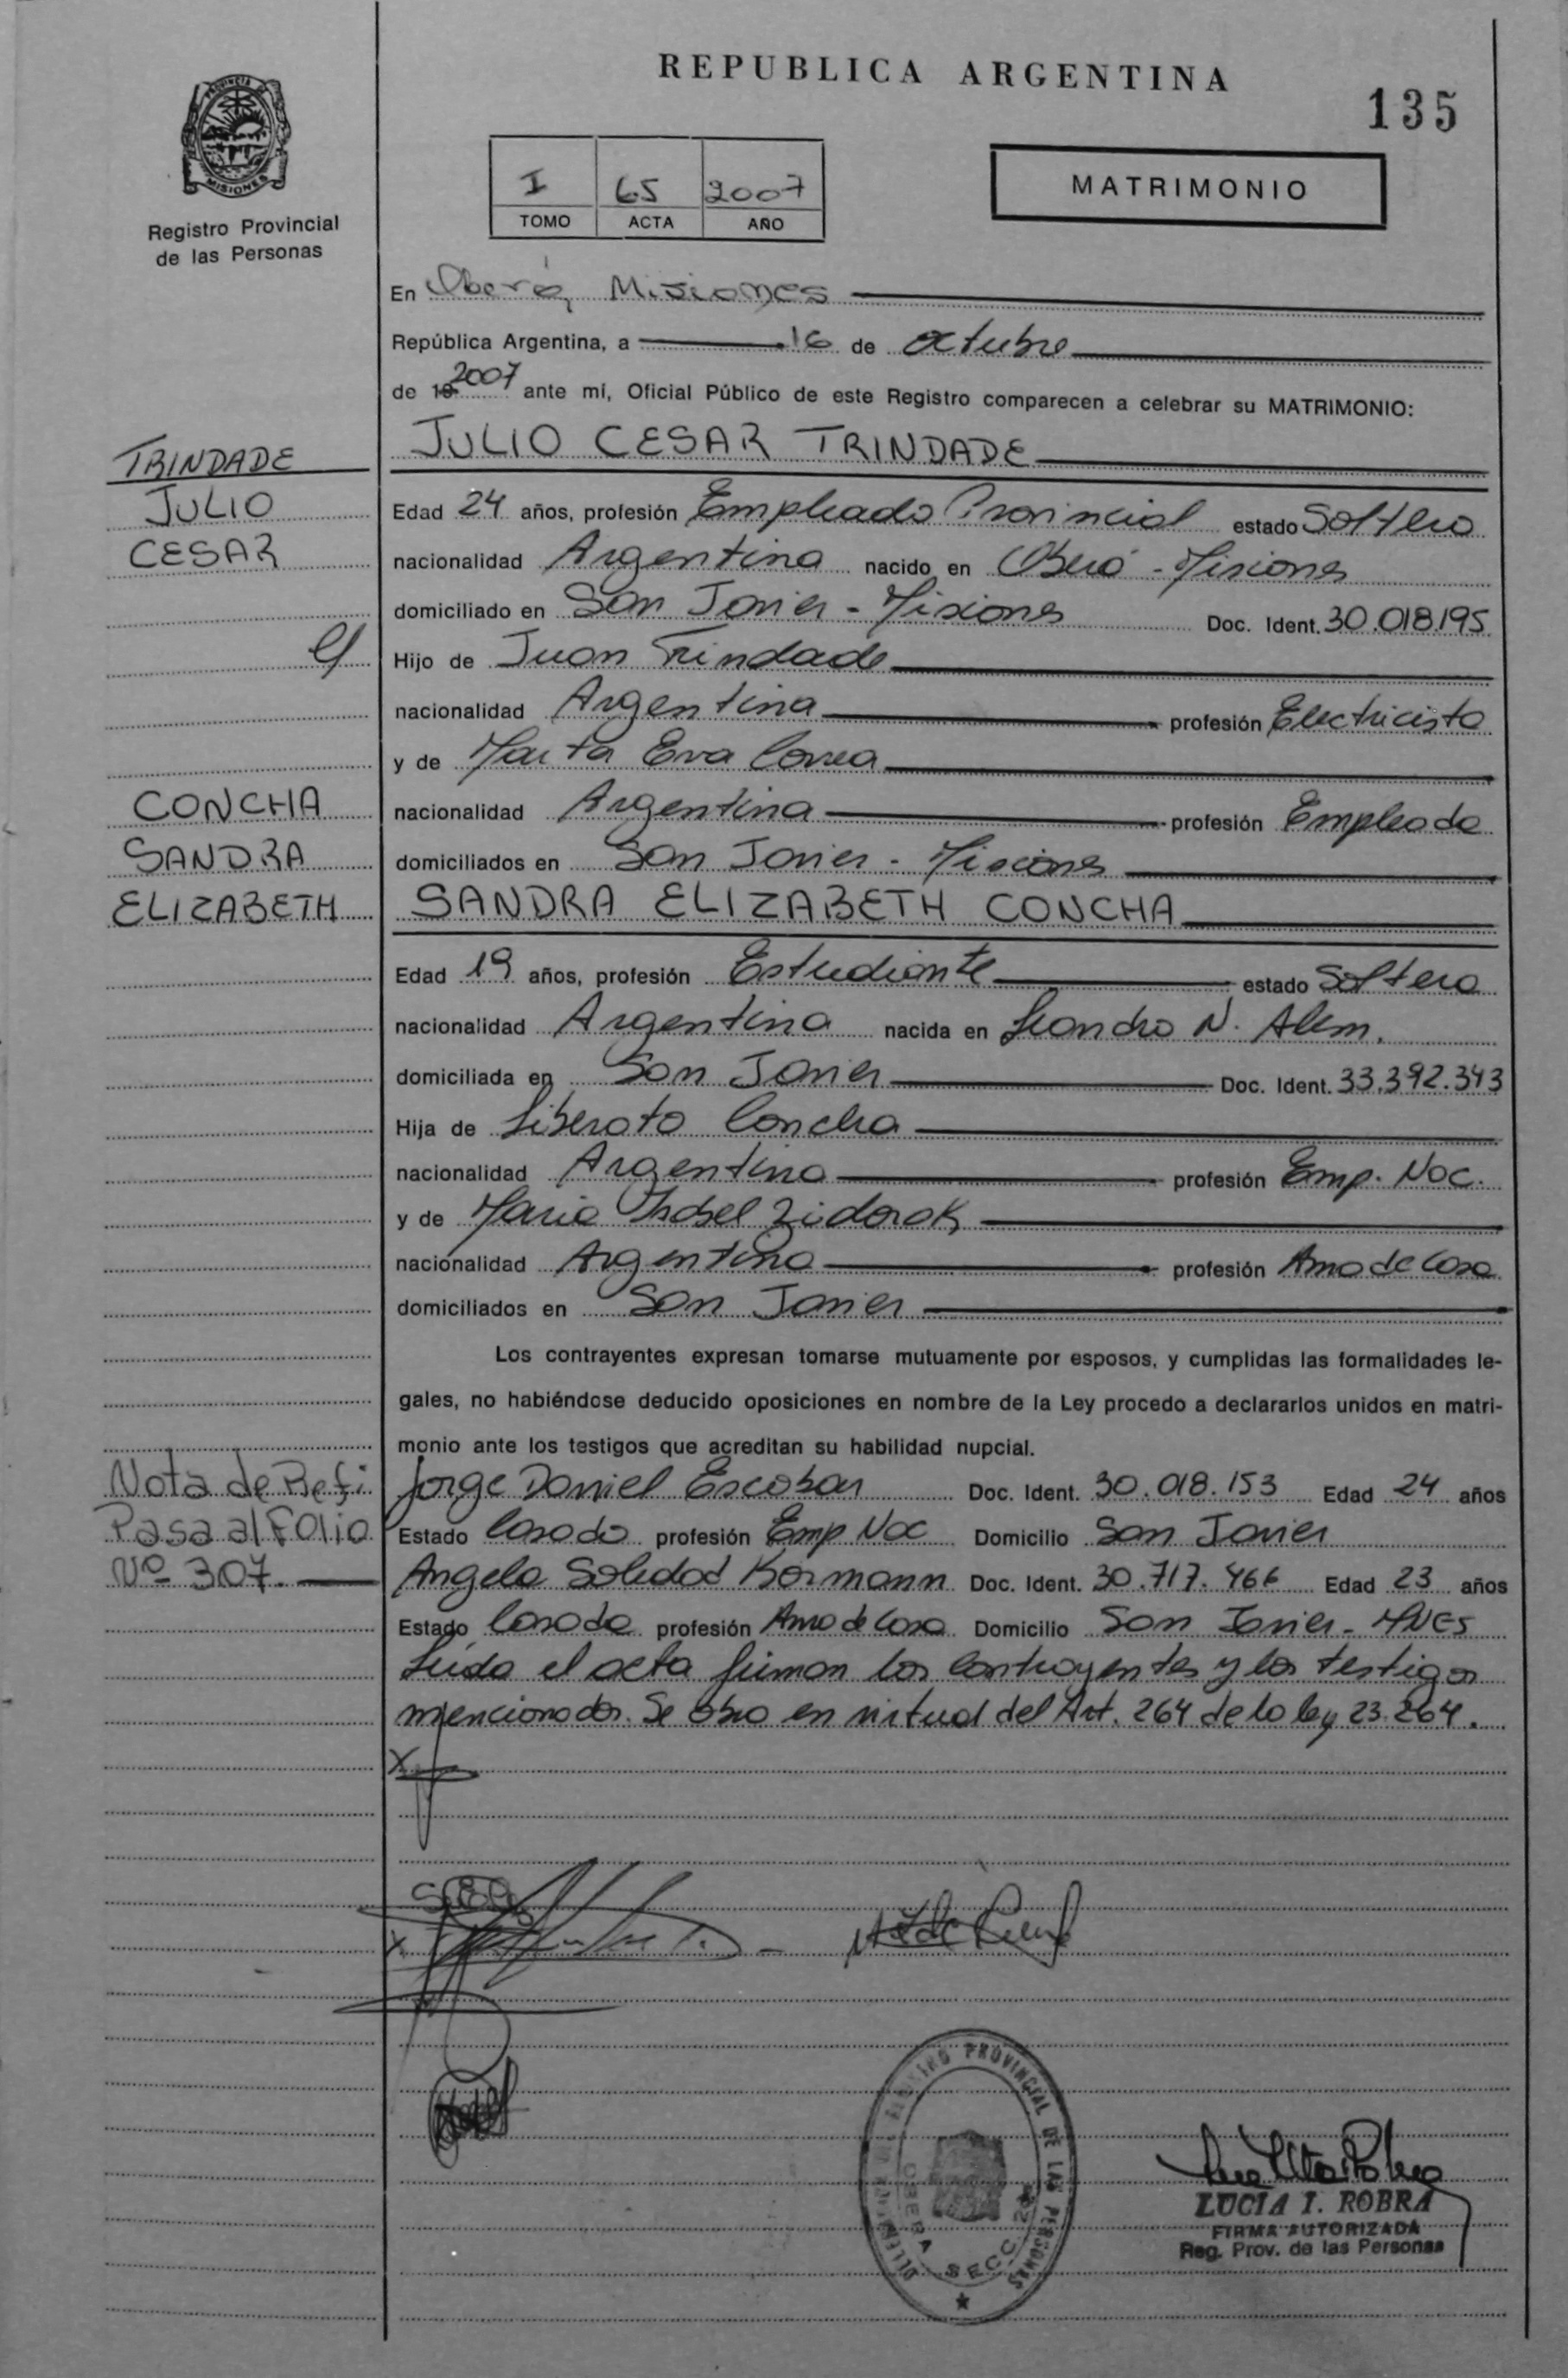 REPUBLICA ARGENTINA
135
PROVINCIA DE
MISIONES
Registro Provincial
de las Personas
I 65 2007
TOMO ACTA AÑO
MATRIMONIO
En Oberá, Misiones
República Argentina, a 16 de octubre
de 19 2007 ante mí, Oficial Público de este Registro comparecen a celebrar su MATRIMONIO:
JULIO CESAR TRINDADE
TRINDADE
JULIO
CESAR
Edad 24 años, profesión Empleado Provincial estado Soltero
nacionalidad Argentina nacido en Oberá - Misiones
domiciliado en San Javier - Misiones Doc. Ident. 30.018.195
Hijo de Juan Trindade
nacionalidad Argentina profesión Electricista
y de Marta Eva Correa
nacionalidad Argentina profesión Empleada
domiciliados en San Javier - Misiones
CONCHA
SANDRA
ELIZABETH
SANDRA ELIZABETH CONCHA
Edad 19 años, profesión Estudiante estado Soltera
nacionalidad Argentina nacida en Leandro N. Alem.
domiciliada en San Javier Doc. Ident. 33.392.343
Hija de Liberato Concha
nacionalidad Argentina profesión Emp. Nac.
y de Maria Isabel Zidorak
nacionalidad Argentina profesión Ama de Casa
domiciliados en San Javier
Los contrayentes expresan tomarse mutuamente por esposos, y cumplidas las formalidades le-
gales, no habiéndose deducido oposiciones en nombre de la Ley procedo a declararlos unidos en matri-
monio ante los testigos que acreditan su habilidad nupcial.
Nota de Ref.
Pasa al Folio
Nº 307.
Jorge Daniel Escobar Doc. Ident. 30.018.153 Edad 24 años
Estado Casado profesión Emp Nac Domicilio San Javier
Angela Soledad Kormann Doc. Ident. 30.717.466 Edad 23 años
Estado Casada profesión Ama de Casa Domicilio San Javier - MNES
Leída el acta firman los contrayentes y los testigos
mencionados. Se obro en virtud del Art. 264 de la ley 23.264.
X
X
REGISTRO PROVINCIAL DE LAS PERSONAS
OBERA SECC.
LUCIA I. ROBRA
FIRMA AUTORIZADA
Reg. Prov. de las Personas